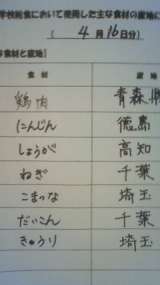 学校給食において使用した主な食材の産地に
( 4月16日分)
食材と産地】
食材 産地
鶏肉 青森県
にんじん 徳島
しょうが 高知
ねぎ 千葉
こまつな 埼玉
だいこん 千葉
きゅうり 埼玉